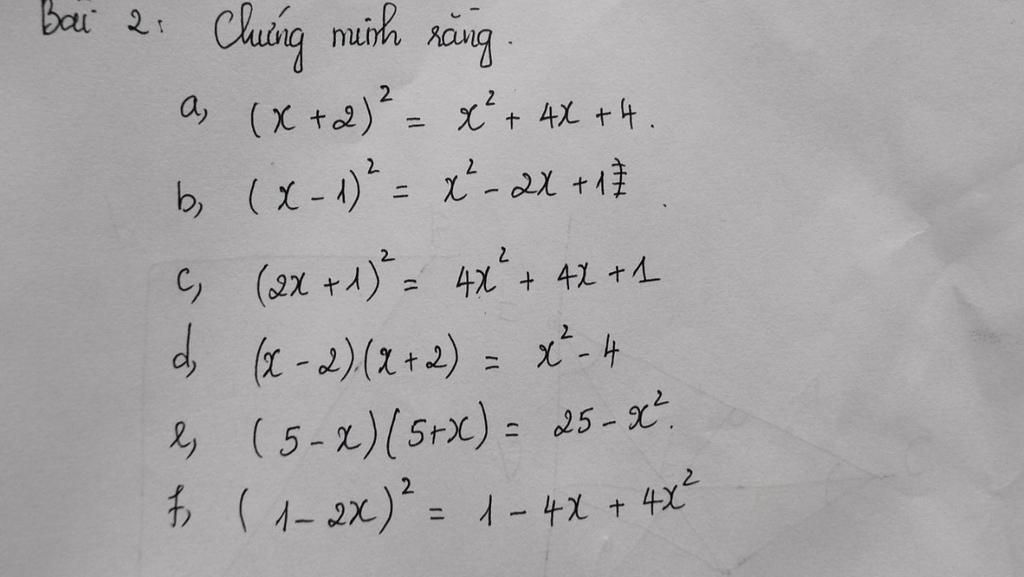 Bài 2: Chứng minh rằng.
a, (x + 2)² = x² + 4x + 4.
b, (x - 1)² = x² - 2x + 1
c, (2x + 1)² = 4x² + 4x + 1
d, (x - 2).(x + 2) = x² - 4
e, (5 - x)(5 + x) = 25 - x².
f, (1 - 2x)² = 1 - 4x + 4x²